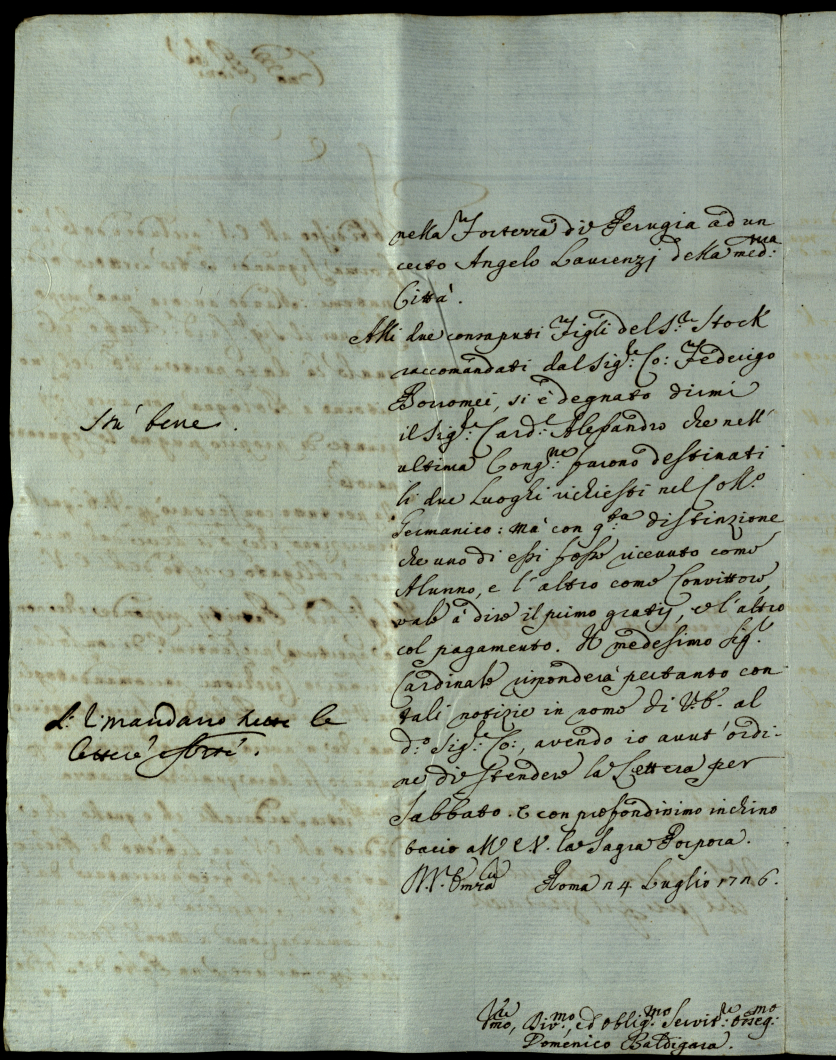 nella Fortezza di Perugia ad un
certo Angelo Laurenzj della med:ma
Città.
Alli due consaputi Figli del S.r Stock
raccomandati dal Sig.r Co: Federigo
Borromei, si è degnato dirmi
il Sig.r Card.l Alessandro che nell'
ultima Cong.ne furono destinati
li due Luoghi richiesti nel Coll.o
Germanico: mà con q.sta distinzione,
che uno di essi fosse ricevuto come
Alunno, e l'altro come Convittore,
vale à dire il primo gratis, e l'altro
col pagamento. Il medesimo Sig.r
Cardinale risponderà pertanto con
tali notizie in nome di V.E. al
d.o Sig.r Co:, avendo io avut'ordi-
ne di stendere la Lettera per
Sabbato. E con profondissimo inchino
bacio all'E.V. la Sagra Porpora.
Roma 24 Luglio 1726.
Um.mo, Div.mo, ed Oblig.mo Servit.re Osseq.mo
Domenico Baldigara.
Stà bene.
si mandano tutte le
lettere